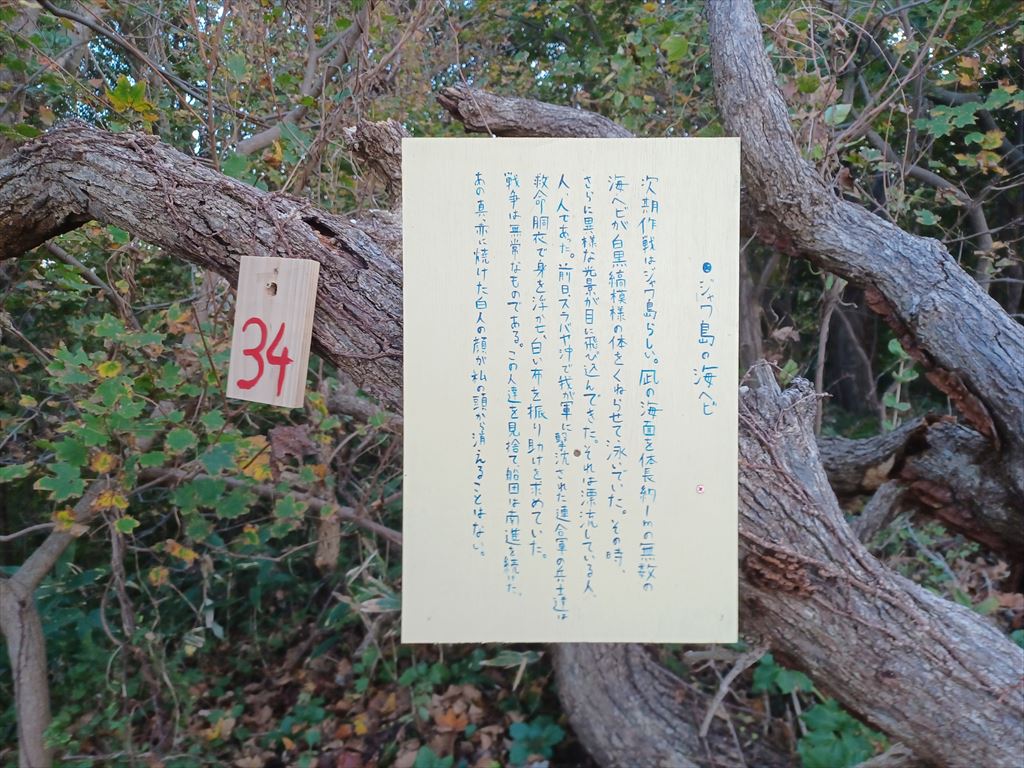 ●ジャワ島の海ヘビ
次期作戦はジャワ島らしい。凪の海面を体長約1mの無数の
海ヘビが白黒縞模様の体をくねらせて泳いでいた。その時、
さらに異様な光景が目に飛び込んできた。それは漂流している人、
人、人であった。前日スラバヤ沖で我が軍に撃沈された連合軍の兵士達は
救命胴衣で身を浮かせ、白い布を振り助けを求めていた。
戦争は無常なものである。この人達を見捨て、船団は南進を続けた。
あの真っ赤に焼けた白人の顔が私の頭から消えることはない。
34